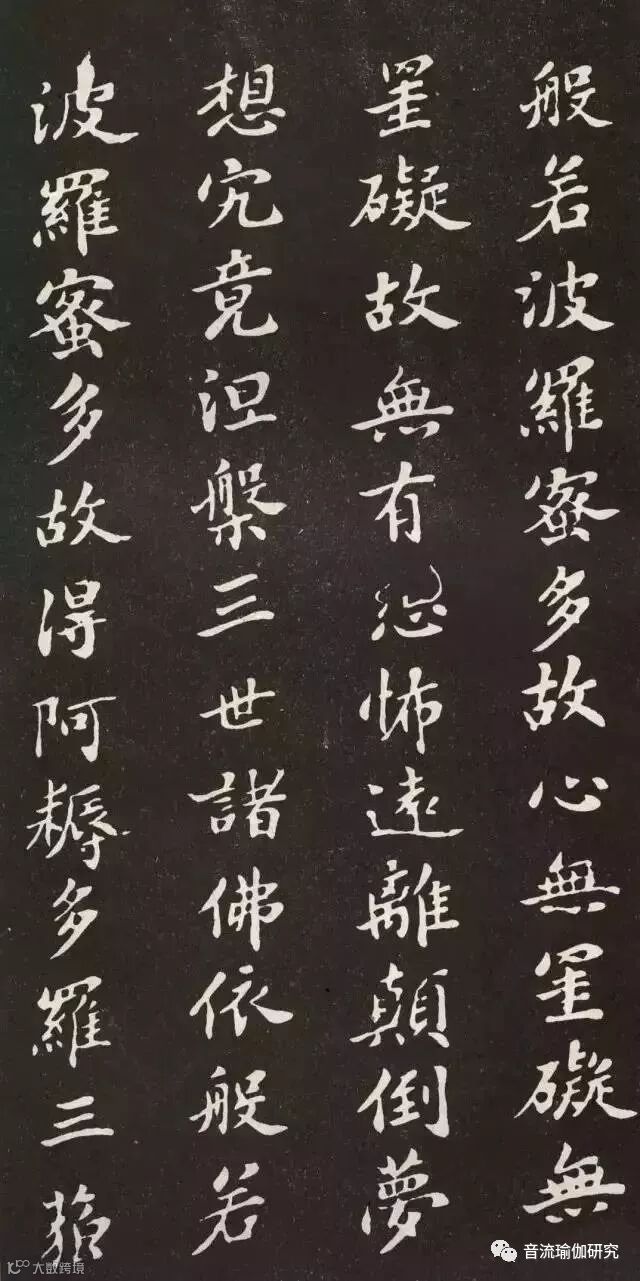 般若波羅蜜多故心無罣礙無
罣礙故無有恐怖遠離顛倒夢
想究竟涅槃三世諸佛依般若
波羅蜜多故得阿耨多羅三藐
音流瑜伽研究
大数跨境